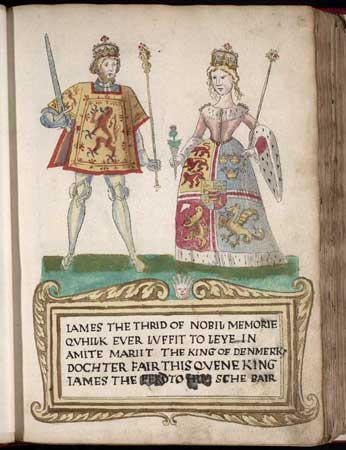 IAMES THE THRID OF NOBIL MEMORIE
QVHILK EVER LVFFIT TO LEVE IN
AMITE MARIIT THE KING OF DENMERK,
DOCHTER FAIR THIS QVENE KING
IAMES THE SCHE BAIR